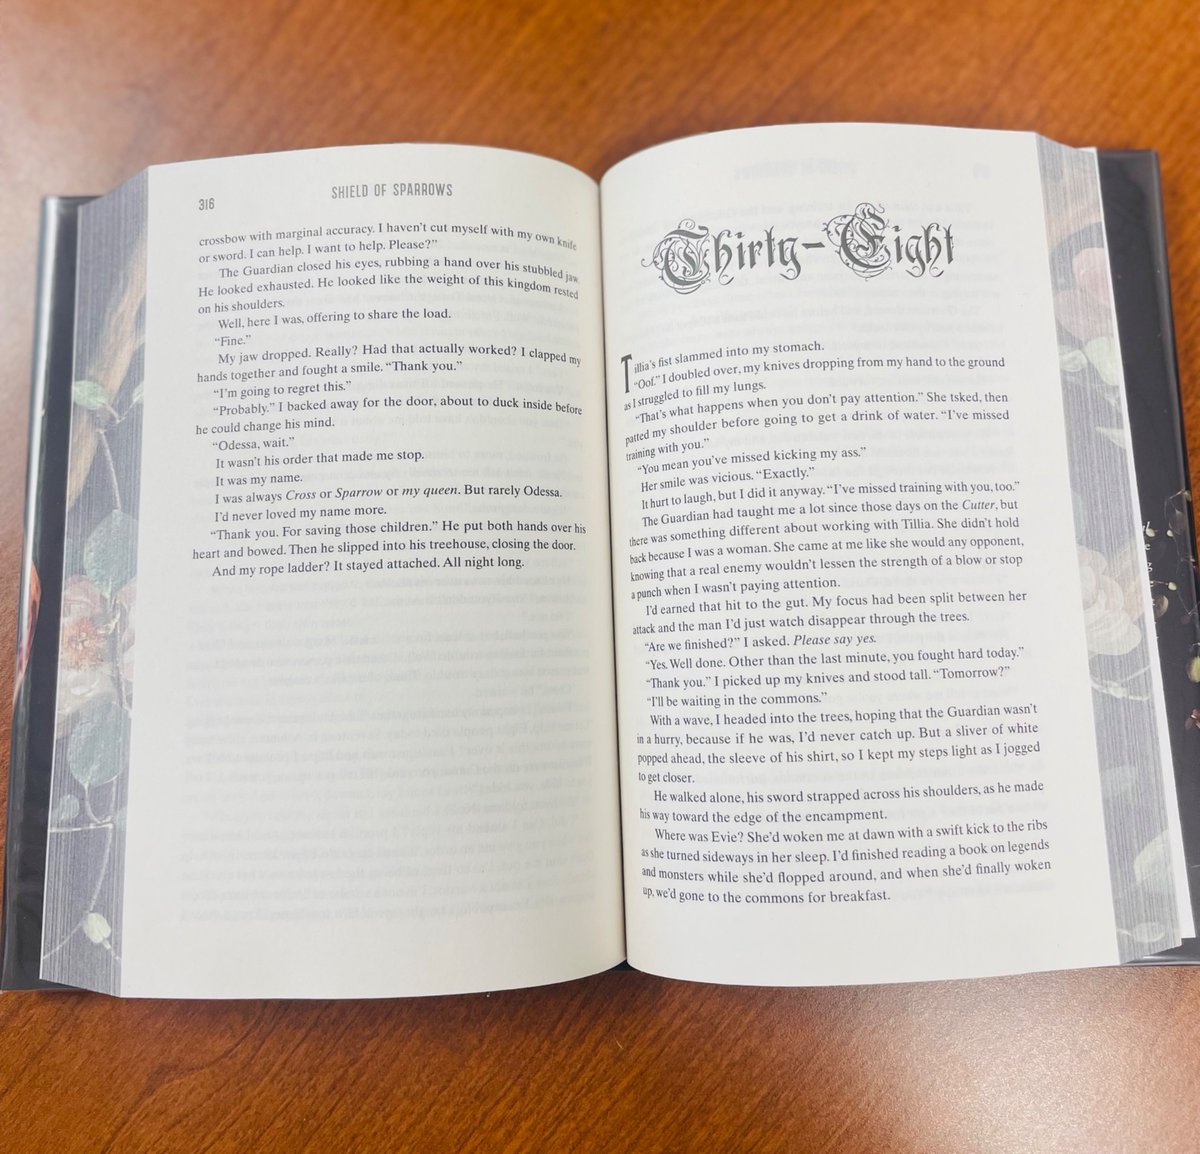 316
SHIELD OF SPARROWS
crossbow with marginal accuracy. I haven't cut myself with my own knife
or sword. I can help. I want to help. Please?”
The Guardian closed his eyes, rubbing a hand over his stubbled jaw.
He looked exhausted. He looked like the weight of this kingdom rested
on his shoulders.
Well, here I was, offering to share the load.
“Fine.”
My jaw dropped. Really? Had that actually worked? I clapped my
hands together and fought a smile. “Thank you.”
“I'm going to regret this.”
“Probably.” I backed away for the door, about to duck inside before
he could change his mind.
“Odessa, wait.”
It wasn't his order that made me stop.
It was my name.
I was always Cross or Sparrow or my queen. But rarely Odessa.
I'd never loved my name more.
“Thank you. For saving those children.” He put both hands over his
heart and bowed. Then he slipped into his treehouse, closing the door.
And my rope ladder? It stayed attached. All night long.
Thirty-Eight
Tillia's fist slammed into my stomach.
“Oof.” I doubled over, my knives dropping from my hand to the ground
as I struggled to fill my lungs.
“That's what happens when you don't pay attention.” She tsked, then
patted my shoulder before going to get a drink of water. “I've missed
training with you.”
“You mean you've missed kicking my ass.”
Her smile was vicious. “Exactly.”
It hurt to laugh, but I did it anyway. “I've missed training with you, too.”
The Guardian had taught me a lot since those days on the Cutter, but
there was something different about working with Tillia. She didn't hold
back because I was a woman. She came at me like she would any opponent,
knowing that a real enemy wouldn't lessen the strength of a blow or stop
a punch when I wasn't paying attention.
I'd earned that hit to the gut. My focus had been split between her
attack and the man I'd just watch disappear through the trees.
“Are we finished?” I asked. Please say yes.
“Yes. Well done. Other than the last minute, you fought hard today.”
“Thank you.” I picked up my knives and stood tall. “Tomorrow?”
“I'll be waiting in the commons.”
With a wave, I headed into the trees, hoping that the Guardian wasn't
in a hurry, because if he was, I'd never catch up. But a sliver of white
popped ahead, the sleeve of his shirt, so I kept my steps light as I jogged
to get closer.
He walked alone, his sword strapped across his shoulders, as he made
his way toward the edge of the encampment.
Where was Evie? She'd woken me at dawn with a swift kick to the ribs
as she turned sideways in her sleep. I'd finished reading a book on legends
and monsters while she'd flopped around, and when she'd finally woken
up, we'd gone to the commons for breakfast.